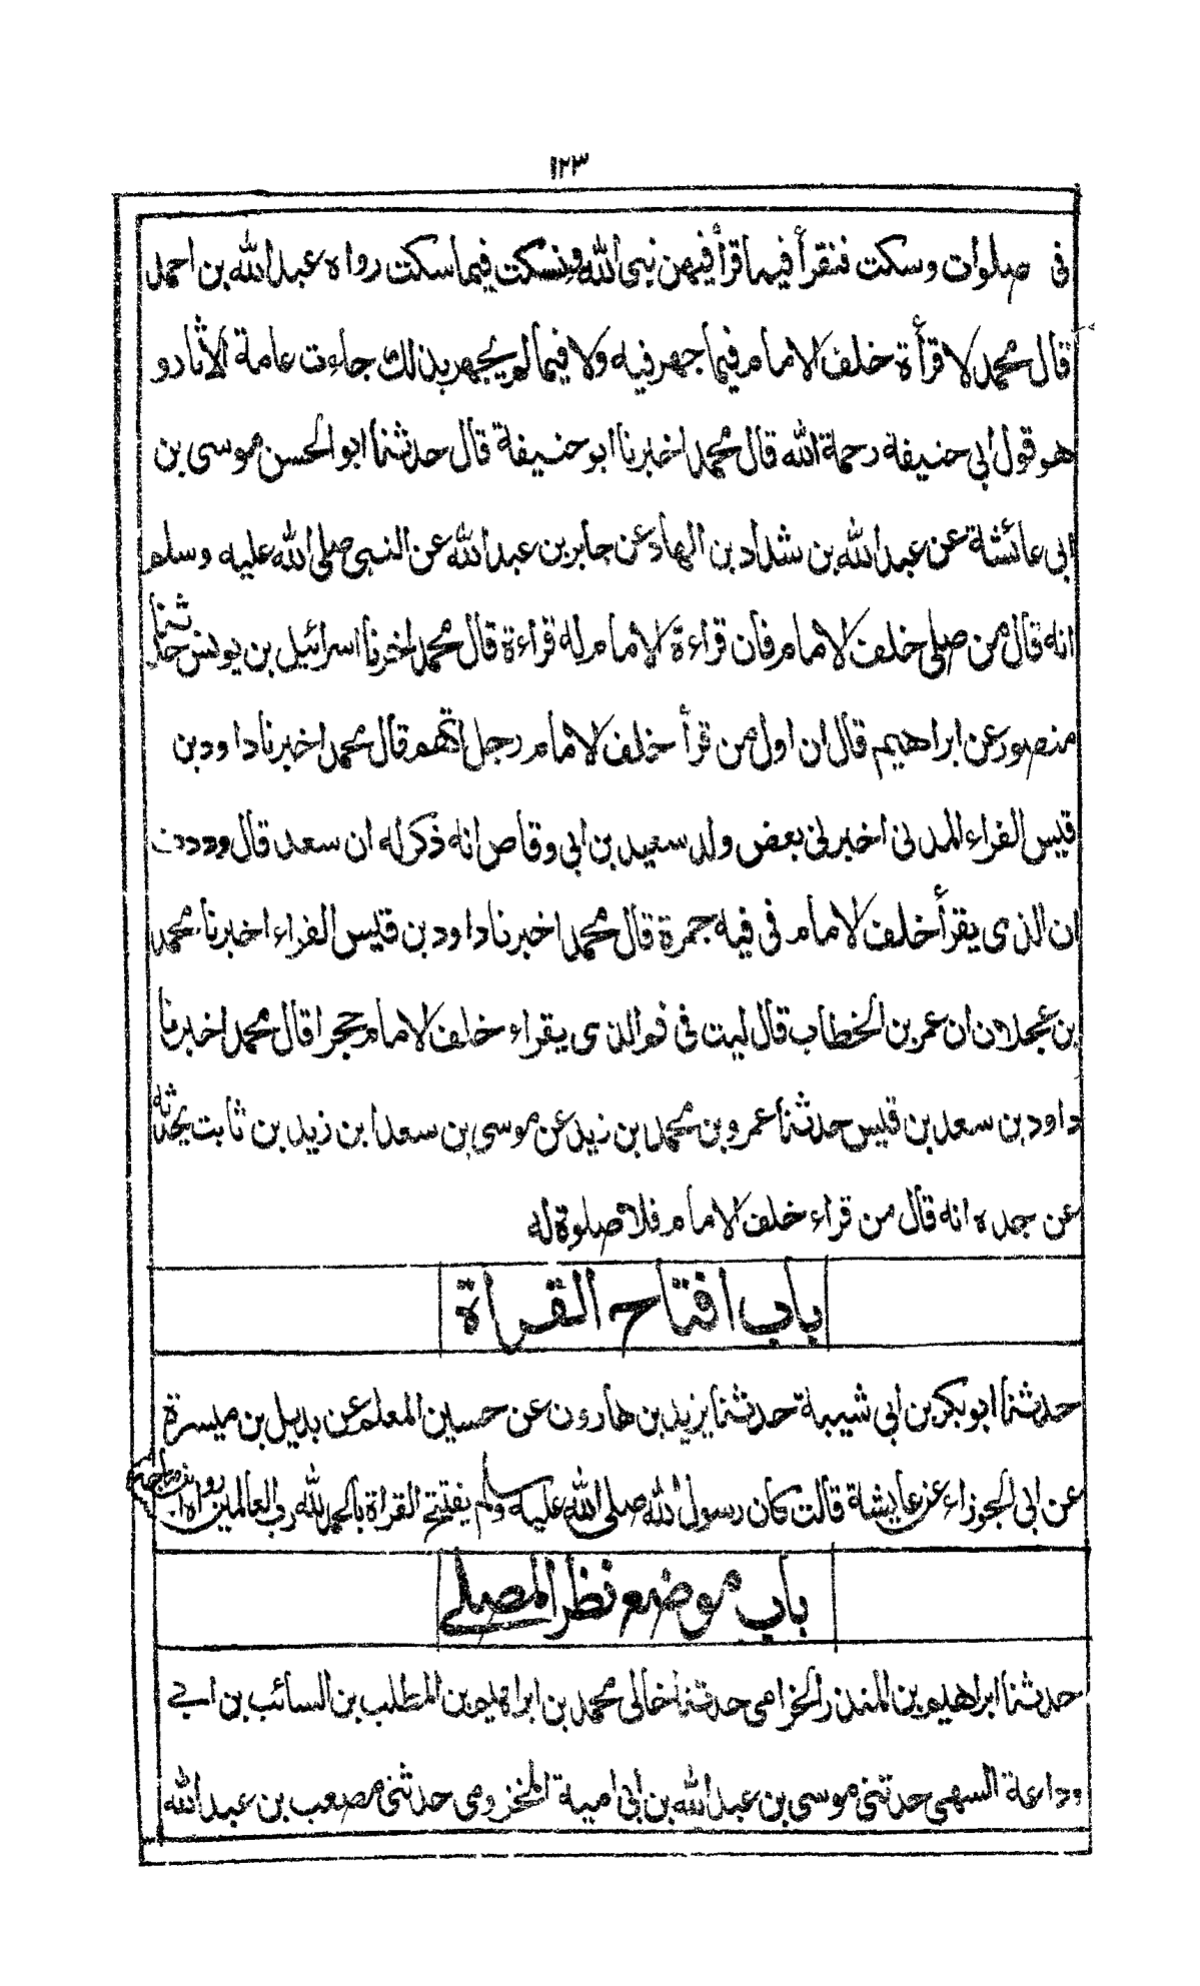 ۱۲۳
فی صلوات وسکت فنقرأ فیہا قرأ فیهن نبی الله ونسکت فیما سکت رواه عبد الله بن احمد
قال محمد لا قرأة خلف الامام فیما جهر فیه ولا فیما لم یجهر بذلك جاءت عامة الأثار و
هو قول ابی حنیفة رحمة الله قال محمد اخبرنا ابو حنیفة قال حدثنا ابو الحسن موسی بن
ابی عائشة عن عبد الله بن شداد بن الهاد عن جابر بن عبد الله عن النبی صلی الله علیه وسلم
انه قال من صلی خلف الامام فان قراءة الامام له قراءة قال محمد اخبرنا اسرائیل بن یونس حدثنا
منصور عن ابراهیم قال ان اول من قرأ خلف الامام رجل اتهم قال محمد اخبرنا داود بن
قیس الفراء المدنی اخبرنی بعض ولد سعید بن ابی وقاص انه ذکر له ان سعد قال وددت
ان الذی یقرأ خلف الامام فی فیه جمرة قال محمد اخبرنا داود بن قیس الفراء اخبرنا محمد
بن عجلان ان عمر بن الخطاب قال لیت فی فم الذی یقراء خلف الامام حجرا قال محمد اخبرنا
داود بن سعد بن قیس حدثنا عمرو بن محمد بن زید عن موسی بن سعد ابن زید بن ثابت یحدثه
عن جده انه قال من قراء خلف الامام فلا صلوة له
باب افتاح القراة
حدثنا ابوبکر بن ابی شیبة حدثنا یزید بن هارون عن حسین المعلم عن بدیل بن میسرة
عن ابی الجوزاء عن عایشة قالت کان رسول الله صلی الله علیه وسلم یفتتح القراة بالحمد لله رب العالمین
باب موضع نظر المصلی
حدثنا ابراهیم بن المنذر الخزامی حدثنا خالی محمد بن ابراهیم بن المطلب بن السائب بن ابی
وداعة السهمی حدثنی موسی بن عبد الله بن ابی امیة المخزومی حدثنی مصعب بن عبد الله